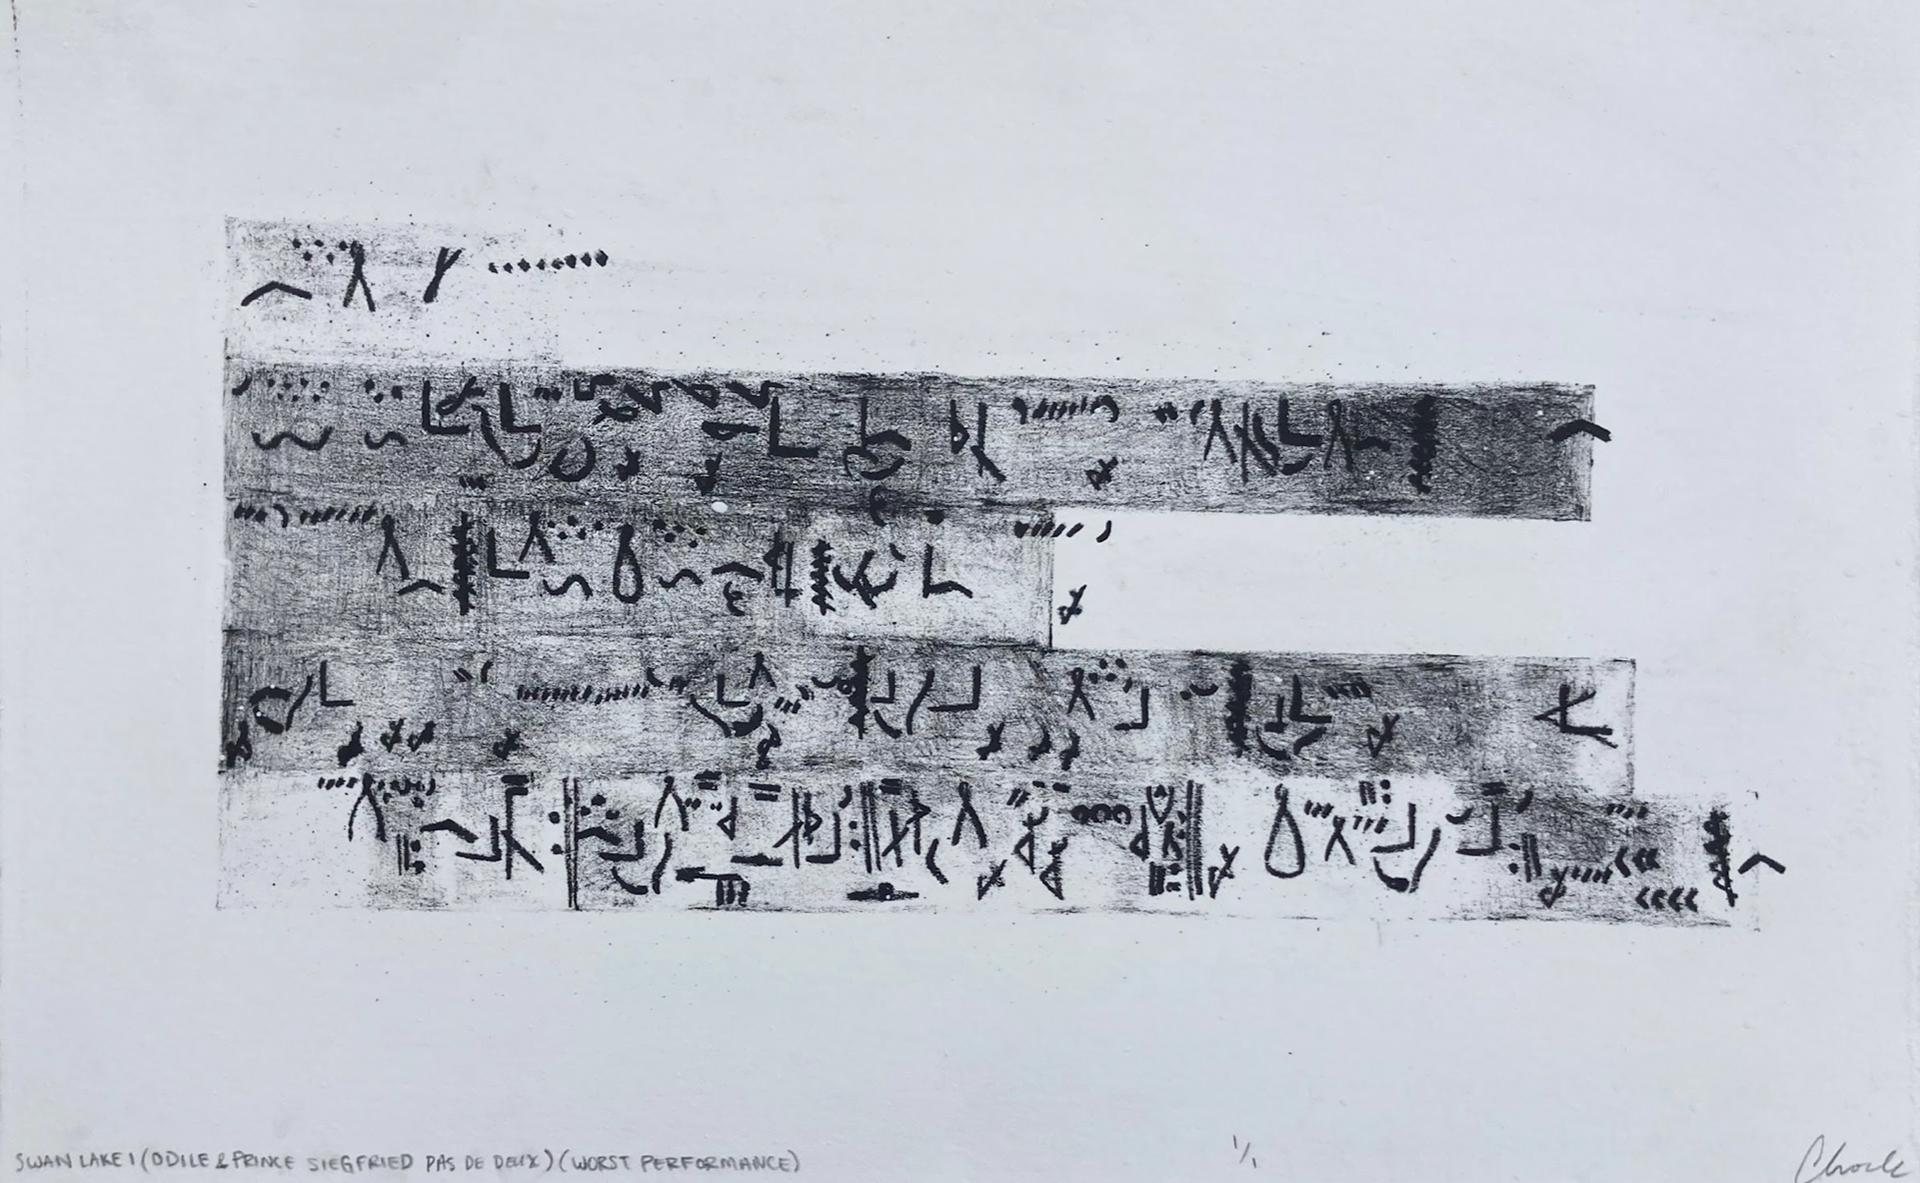 SWAN LAKE 1 (ODILE & PRINCE SIEGFRIED PAS DE DEUX) (WORST PERFORMANCE)
1/1